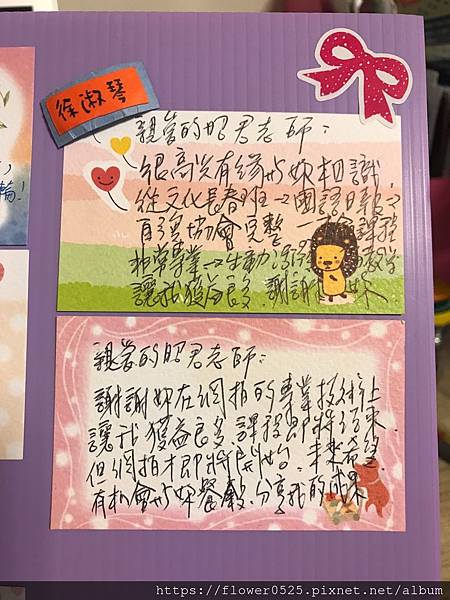 徐淑琴
親愛的昭君老師：
很高興有緣与妳相識
從文化長春班→國語日報→
有聲協會完整一 課程
非常專業→生動活 教学
讓我獲益良多.謝謝 妹
輪！
親愛的昭君老師：
謝謝妳在網拍的專業技術上
讓我獲益良多.課程即將結束.
但網拍才即將開始.未來希望
有机會与妳餐敘.分享我的成果
https://flower0525.pixnet.net/album